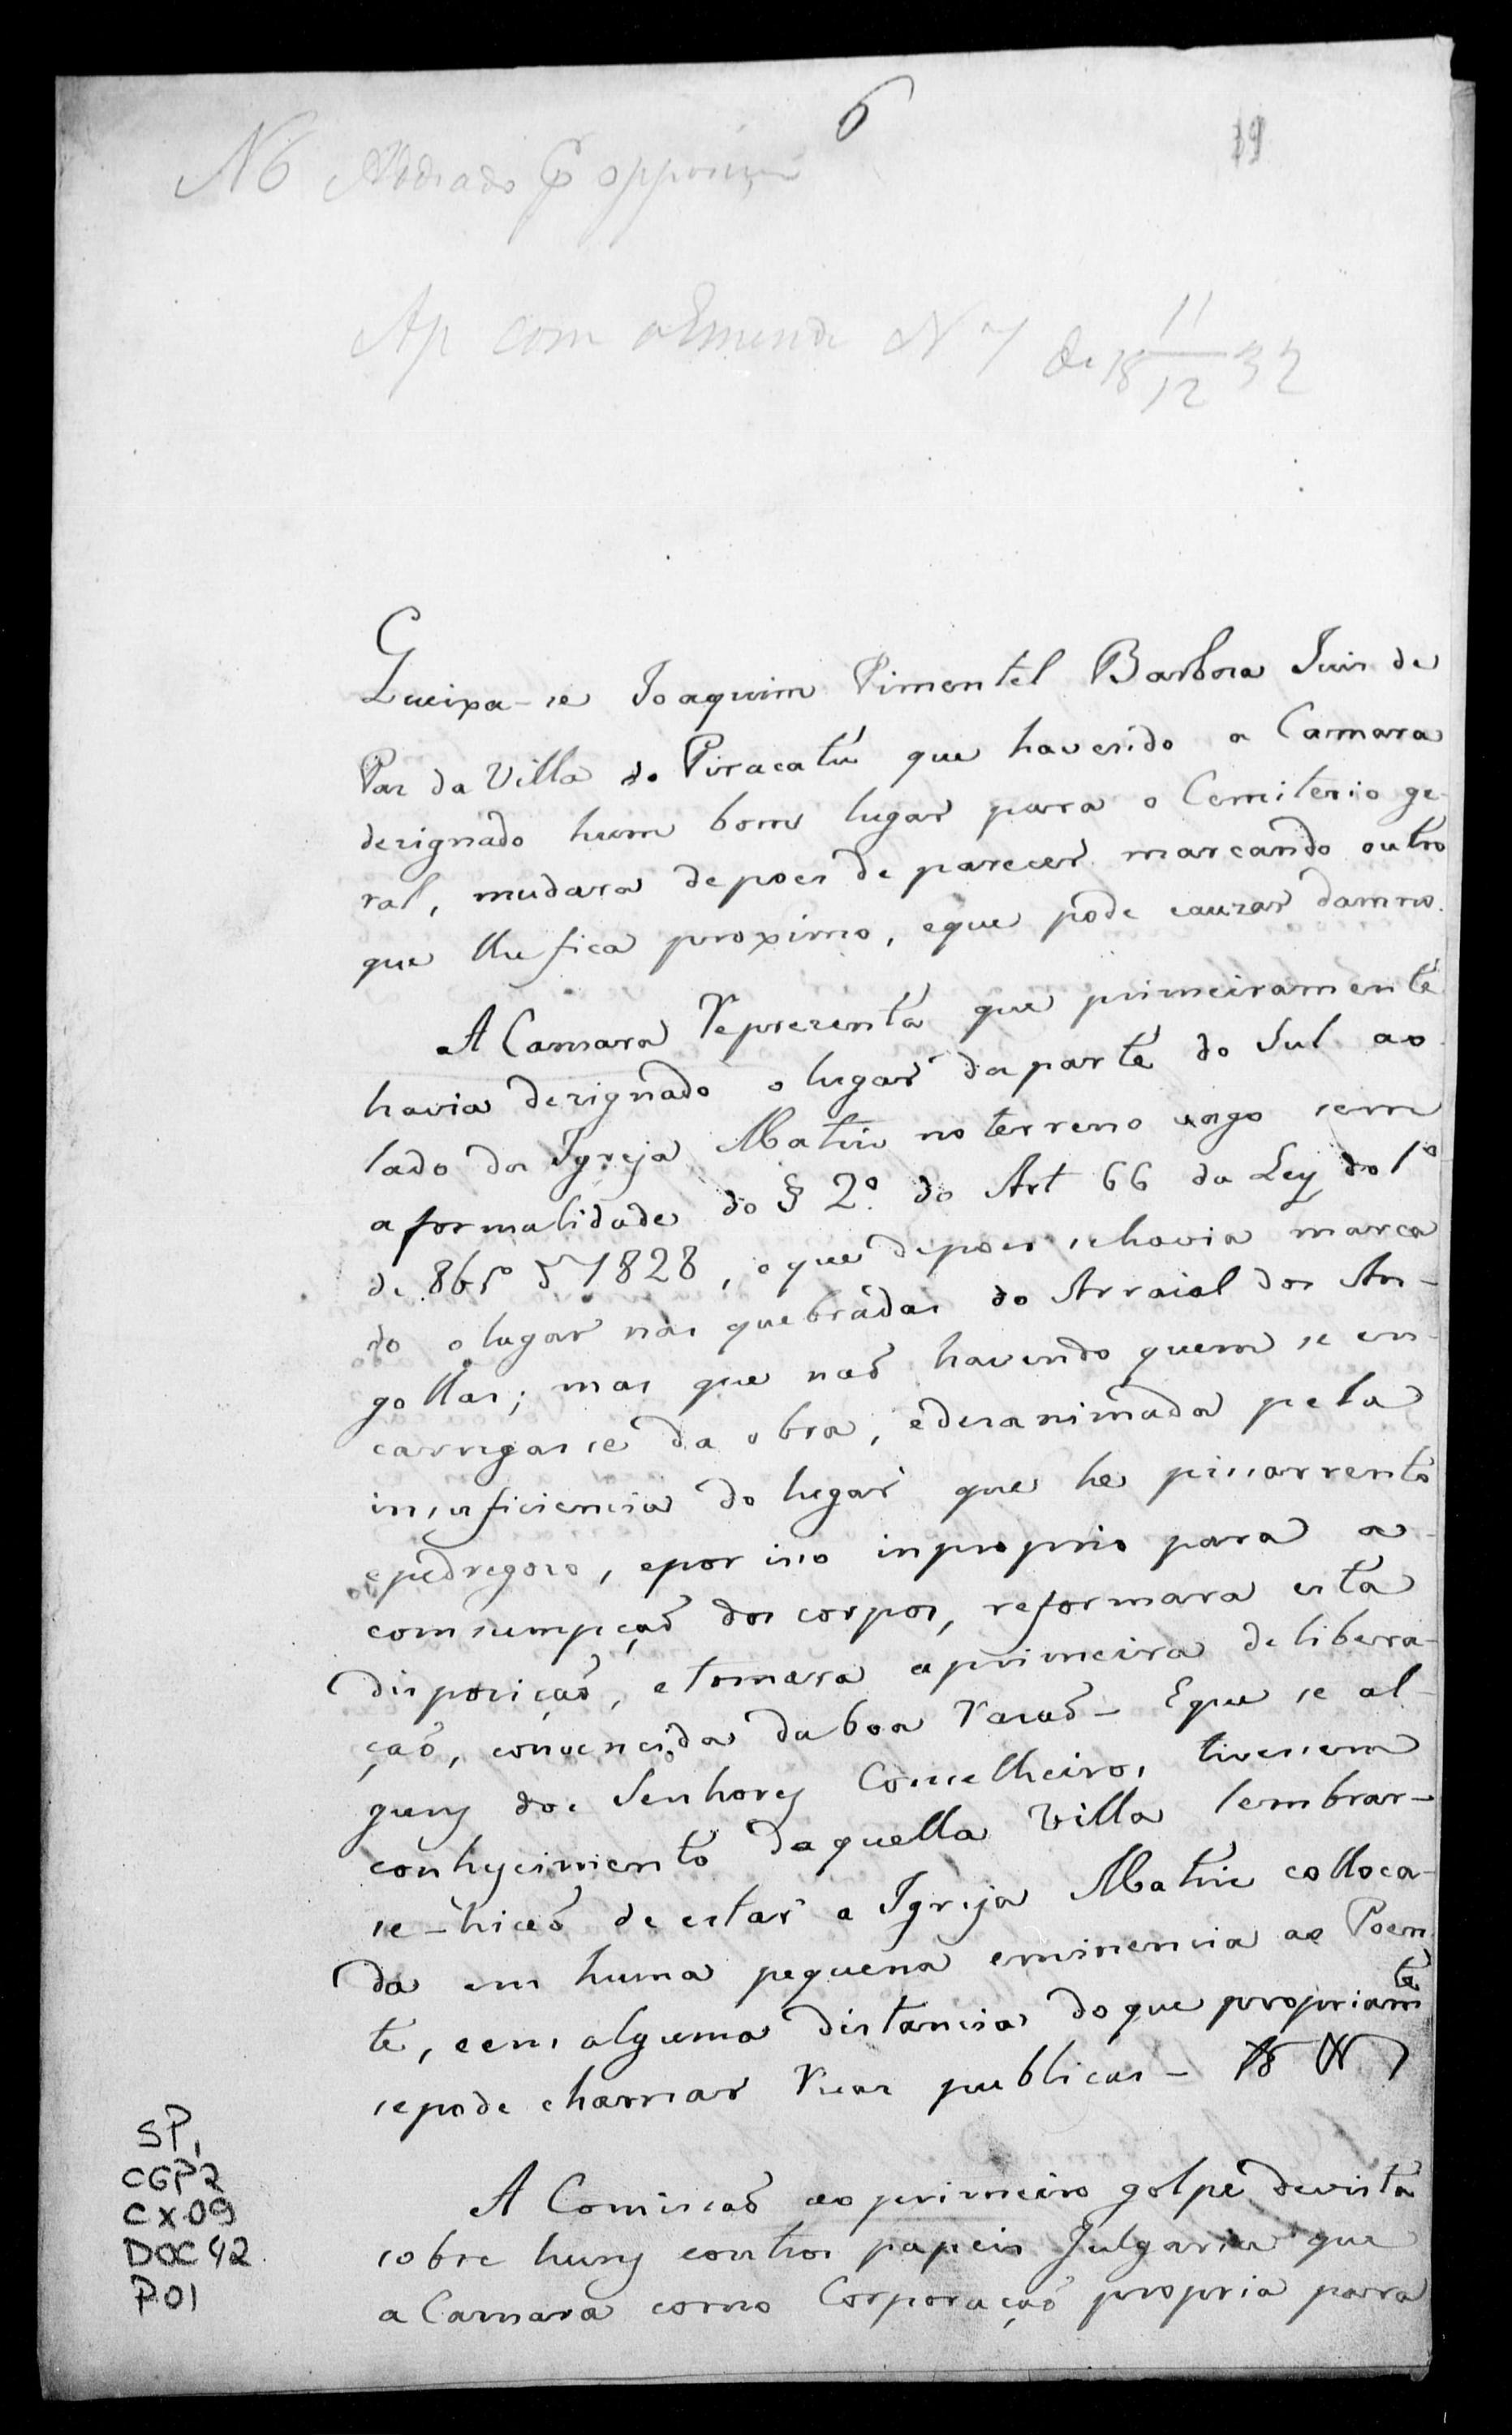 6
19
N 6 Addiado p opposição
Ap com a Emenda N 7 de 18 11/12 32
Queixa-se Joaquim Pimentel Barbosa Juis de
Paz da Villa do Piracatú que havendo a Camara
designado hum bom lugar para o Cemiterio ge-
ral, mudara depoes de parecer marcando outro
que lhe fica proximo, e que pode cauzar damno.
A Camara Representa que primeiramente
havia designado o lugar da parte do Sul ao
lado da Igreja Matriz no terreno vago sem
a formalidade do § 2.º do Art 66 da Ley do 1º
de 8brº de 1828, e que depoes se havia marca
do o lugar nas quebradas do Arraial dos An-
gollas; mas que naõ havendo quem se en-
carregasse da obra, e desanimada pela
insuficiencia do lugar que he pissarrento
e pedregoso, e por isso inproprio para a
comsumpçaõ dos corpos, reformara esta
disposiçaõ, e tomara a primeira delibera-
çaõ, convencida da boa razaõ - E que se al-
guns dos Senhores Conselheiros tivessem
conhecimento daquella Villa lembrar-
se-hiaõ de estar a Igreja Matriz colloca-
da em huma pequena eminencia ao Poen
te, e em alguma distancia do que propriamte
se pode chamar Ruas publicas -
A Comissaõ ao primeiro golpe de vista
sobre huns e outros papeis Julgaria que
a Camara como Corporaçaõ propria para
SP,
CGP2
CX.09
DOC 42.
P.01